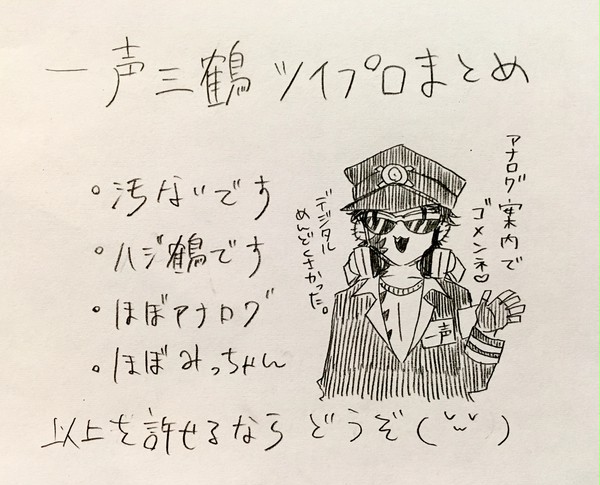 一声三鶴 ツイプロまとめ
・汚ないです
・ハジ鶴です
・ほぼアナログ
・ほぼみっちゃん
アナログ案内で
ゴメンネ♡
デジタル
めんどくさかった。
一声
以上を許せるなら どうぞ(¨̮)